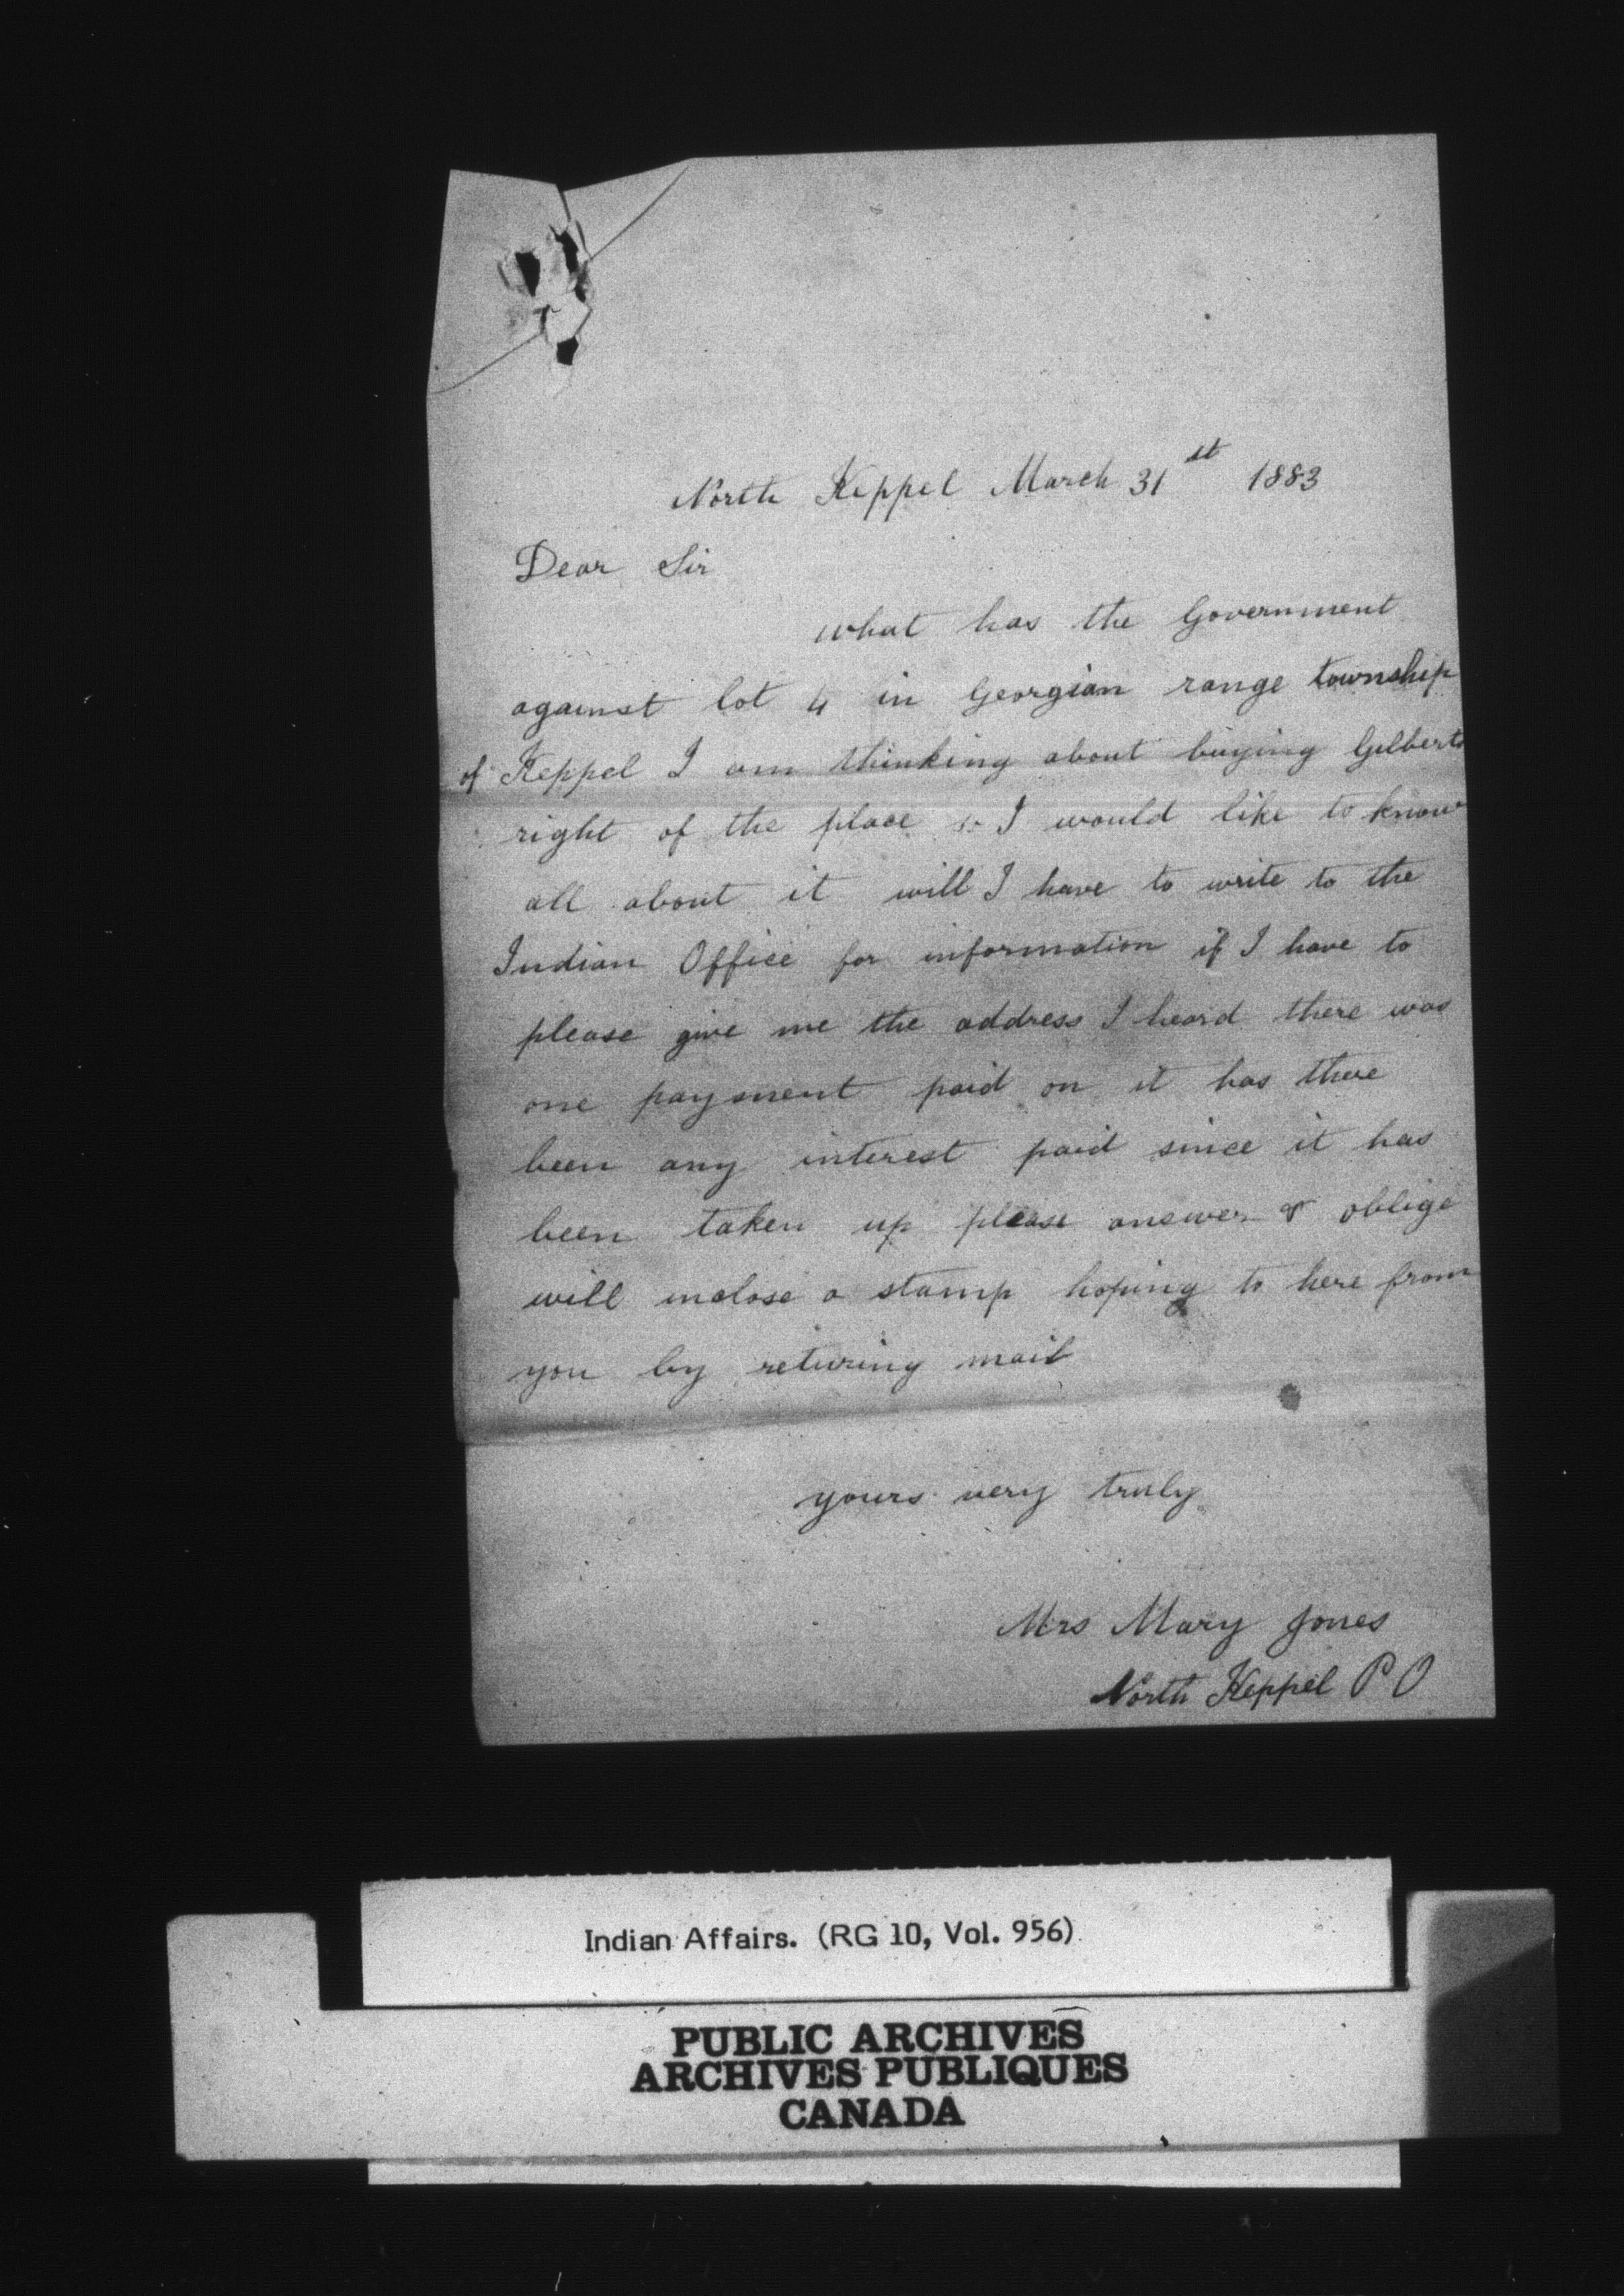 North Keppel March 31st 1883
Dear Sir
what has the Government
against lot 4 in Georgian range township
of Keppel I am thinking about buying Gilberts
right of the place & I would like to know
all about it will I have to write to the
Indian Office for information if I have to
please give me the address I heard there was
one payment paid on it has there
been any interest paid since it has
been taken up please answer & oblige
will inclose a stamp hoping to here from
you by returing mail
yours very truly
Mrs Mary Jones
North Keppel P O
Indian Affairs. (RG 10, Vol. 956)
PUBLIC ARCHIVES
ARCHIVES PUBLIQUES
CANADA